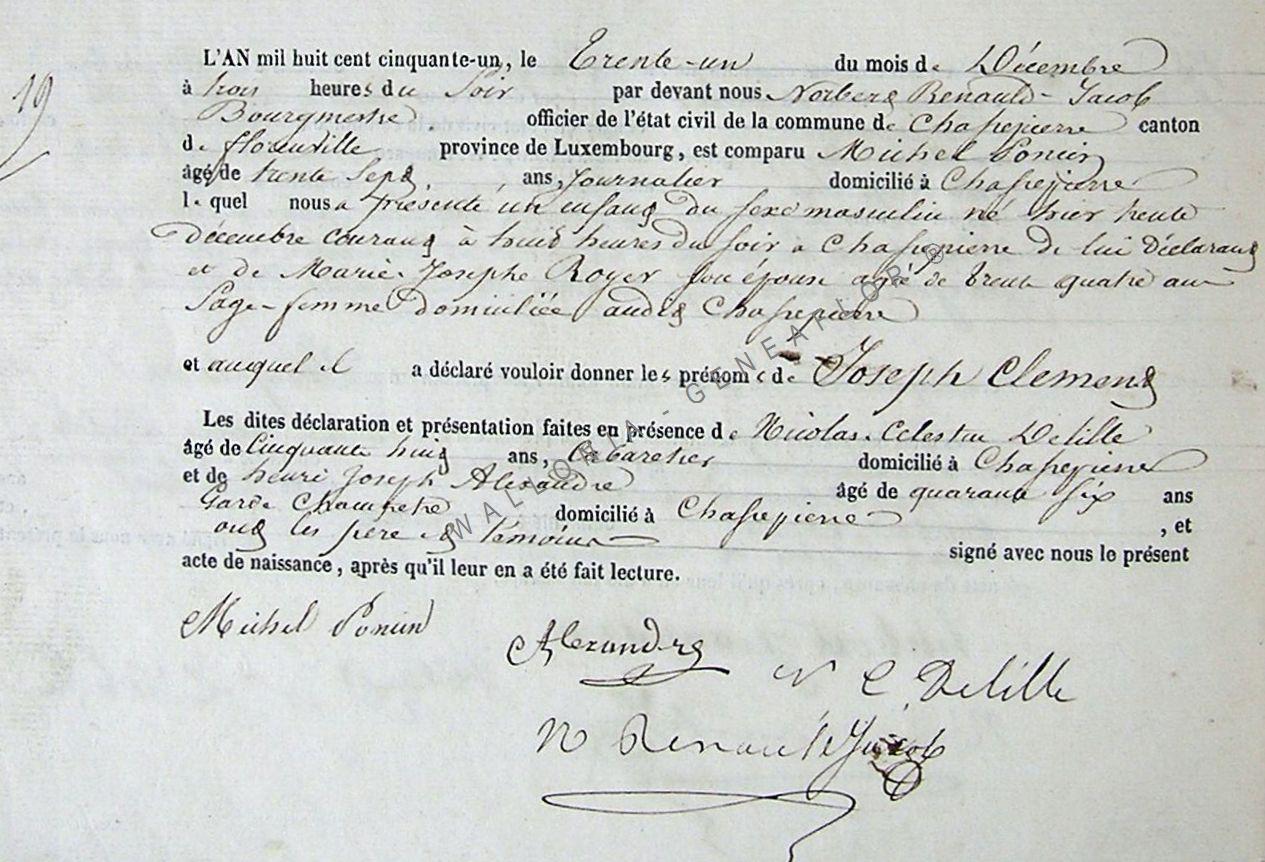 19
L'AN mil huit cent cinquante-un, le Trente-un du mois de Décembre
à trois heures du Soir par devant nous Norbert Renauld-Jacob
Bourgmestre officier de l'état civil de la commune de Chassepierre canton
de florenville province de Luxembourg, est comparu Michel Poncin
âgé de trente Sept ans, Journalier domicilié à Chassepierre
lequel nous a présenté un enfant du sexe masculin né hier trente
décembre courant à huit heures du soir à Chassepierre de lui Déclarant
et de Marie-Josephe Royer son épouse agée de trente quatre ans
Sage-femme domiciliée audit Chassepierre
et auquel il a déclaré vouloir donner les prénoms de Joseph Clement
Les dites déclaration et présentation faites en présence de Nicolas-Celestin Delille
âgé de Cinquante huit ans, Cabaretier domicilié à Chassepierre
et de henri Joseph Alexandre âgé de quarante six ans
Garde Champetre domicilié à Chassepierre, et
ont les père et témoins signé avec nous le présent
acte de naissance, après qu'il leur en a été fait lecture.
Michel Poncin
Alexandre
N C Delille
N Renauld Jacob
WALLONIA - GENEAFLOR ®